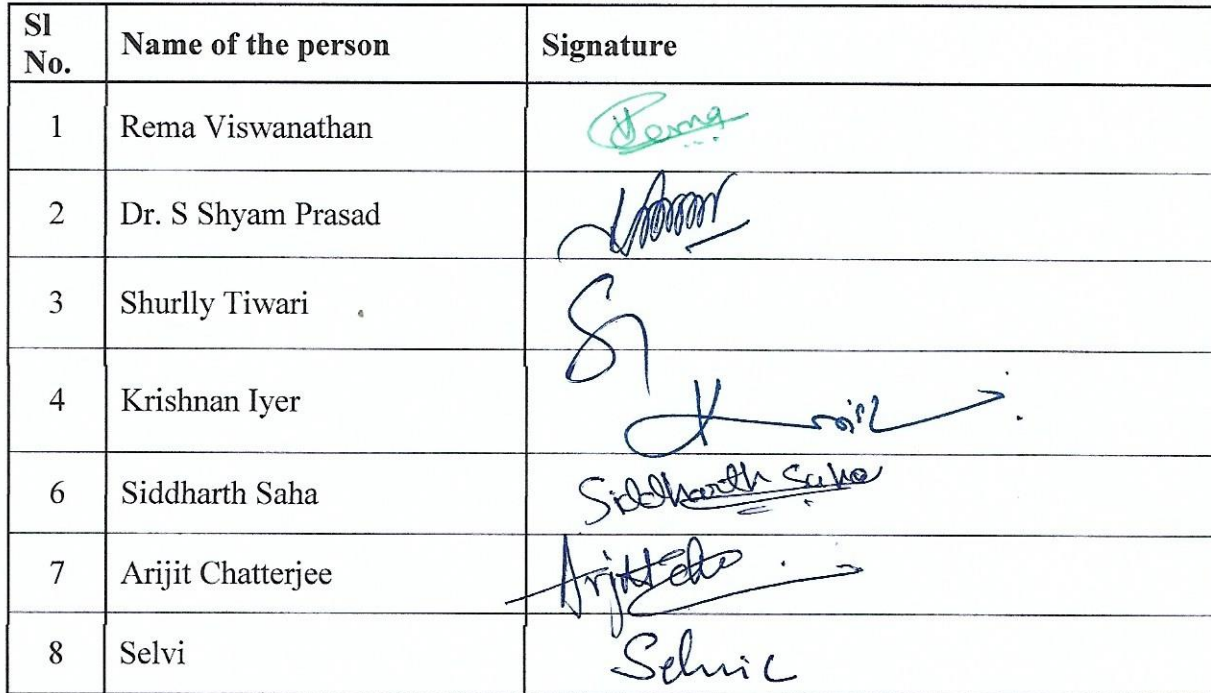 Sl No. Name of the person Signature
1 Rema Viswanathan Rema
2 Dr. S Shyam Prasad
3 Shurlly Tiwari
4 Krishnan Iyer
6 Siddharth Saha Siddharth Saha
7 Arijit Chatterjee
8 Selvi Selvi